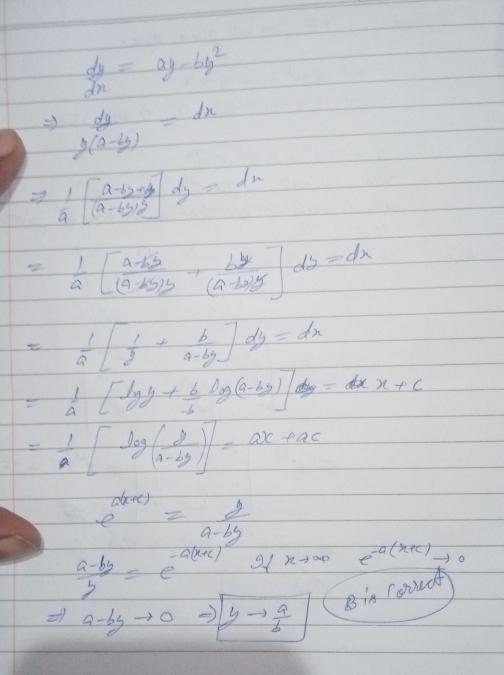 dy/dx = ay - by²
⇒ dy/y(a-by) = dx
⇒ 1/a [(a-by+by)/(a-by)y] dy = dx
= 1/a [(a-by)/(a-by)y + by/(a-by)y] dy = dx
= 1/a [1/y + b/(a-by)] dy = dx
= 1/a [log y + b/b log(a-by)] = x + c
= 1/a [log(y/(a-by))] = ax + ac
e^a(x+c) = y/(a-by)
(a-by)/y = e^-a(x+c) If x→∞ e^-a(x+c) → 0
⇒ a-by → 0 ⇒ y → a/b B is correct